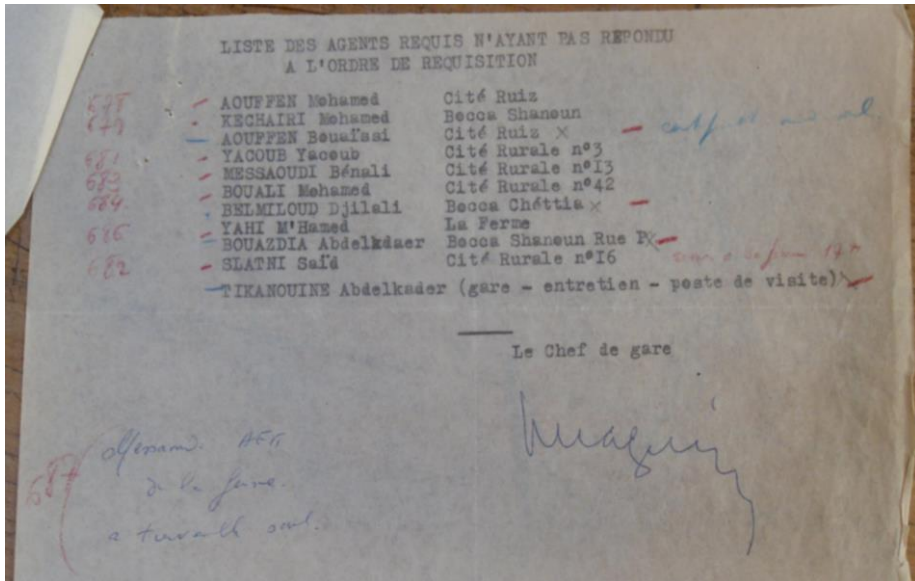 LISTE DES AGENTS REQUIS N'AYANT PAS REPONDU
A L'ORDRE DE REQUISITION
678 - AOUFFEN Mohamed Cité Ruiz
679 - KECHAIRI Mohamed Bocca Shanoun
- AOUFFEN Bouaïssi Cité Ruiz x -
681 - YACOUB Yacoub Cité Rurale n°3
- MESSAOUDI Bénali Cité Rurale n°I3
683 - BOUALI Mohamed Cité Rurale n°42
684 BELMILOUD Djilali Bocca Chéttia x -
- YAHI M'Hamed La Ferme
686 - BOUAZDIA Abdelkdaer Bocca Shanoun Rue P x -
682 - SLATNI Saïd Cité Rurale n°I6
- TIKANOUINE Abdelkader (gare - entretien - poste de visite) x -
Le Chef de gare
687
de la
a travaillé